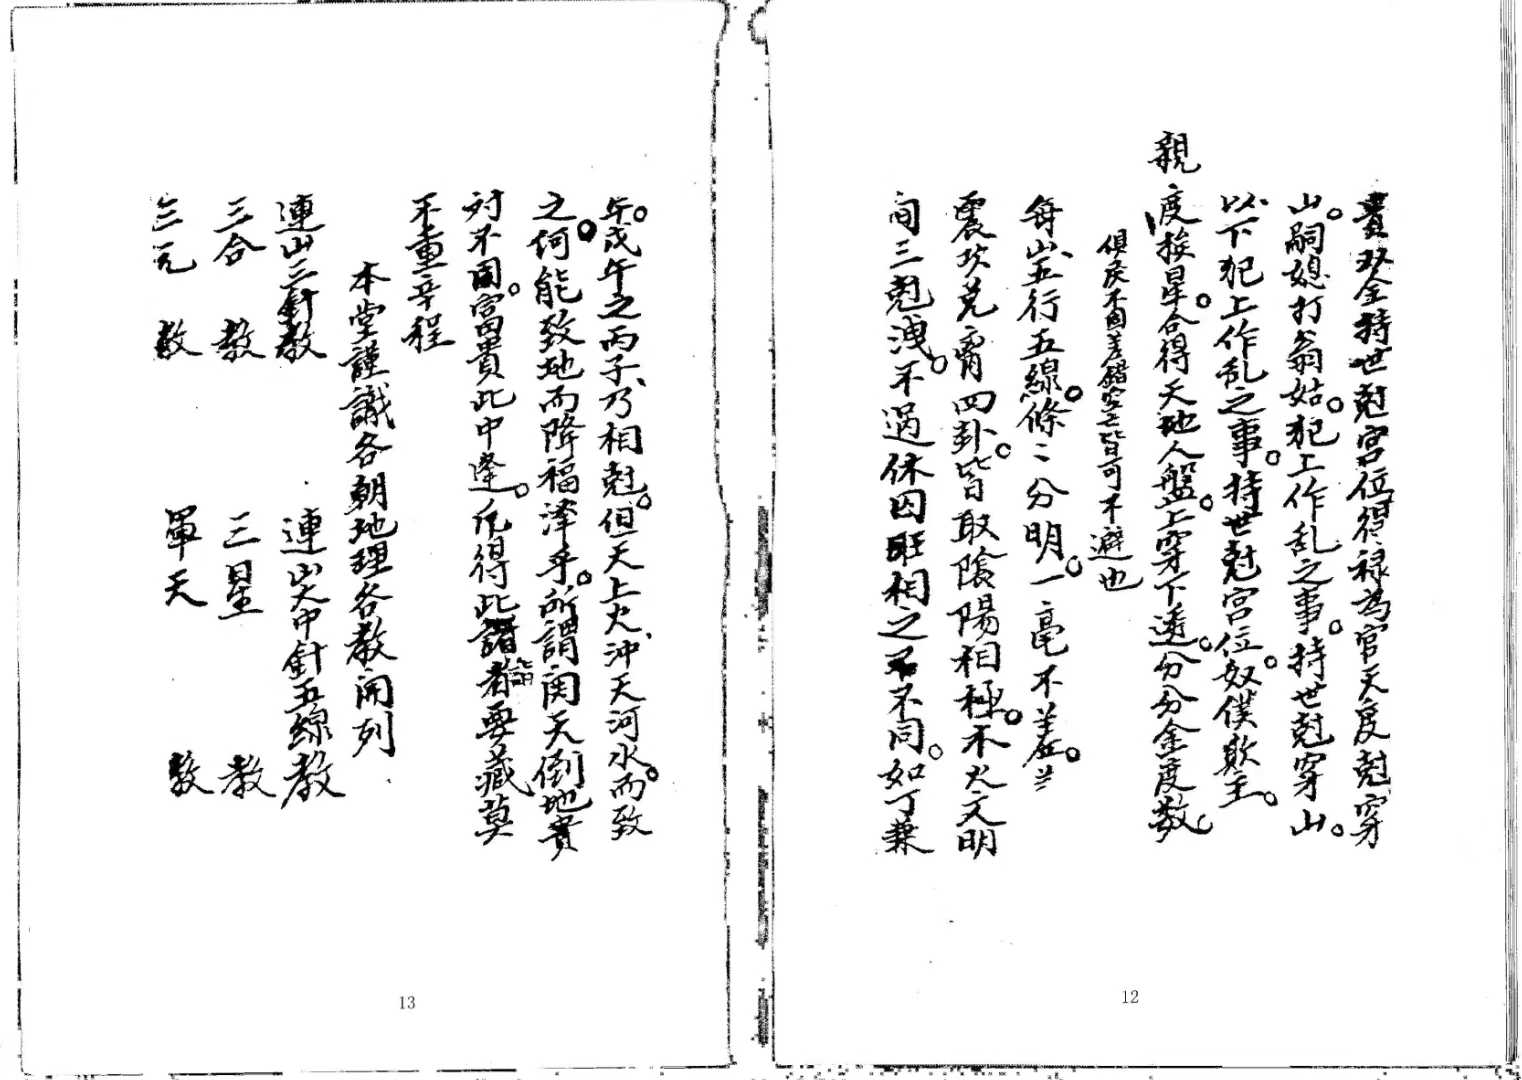 貴双金持世尅宮位得禄為官天度尅穿
山。嗣媳打翁姑。犯上作乱之事。持世尅穿山。
以下犯上作乱之事。持世尅宮位。奴僕欺主。
親
度挨星。合得天地人盤。上穿下透。分分金度数。
俱戾不困差錯空亡皆可不避也
每山、五行五線。條〻分明。一毫不差。兰
震坎兑离四卦。皆取陰陽相極。不犬文明
间三尅洩。不過休囚旺相之不同。如丁兼
12
午。戊午之丙子、乃相尅。但天上火、沖天河水。而致
之。何能致地而降福澤乎。所謂関天倒地貴
対不困。富貴此中逢。凢得此譜者要藏莫
不重辛程
本堂謹識各朝地理各教開列
連山三針教 連山天中針五線教
三合教 三星教
三元教 罩天教
13